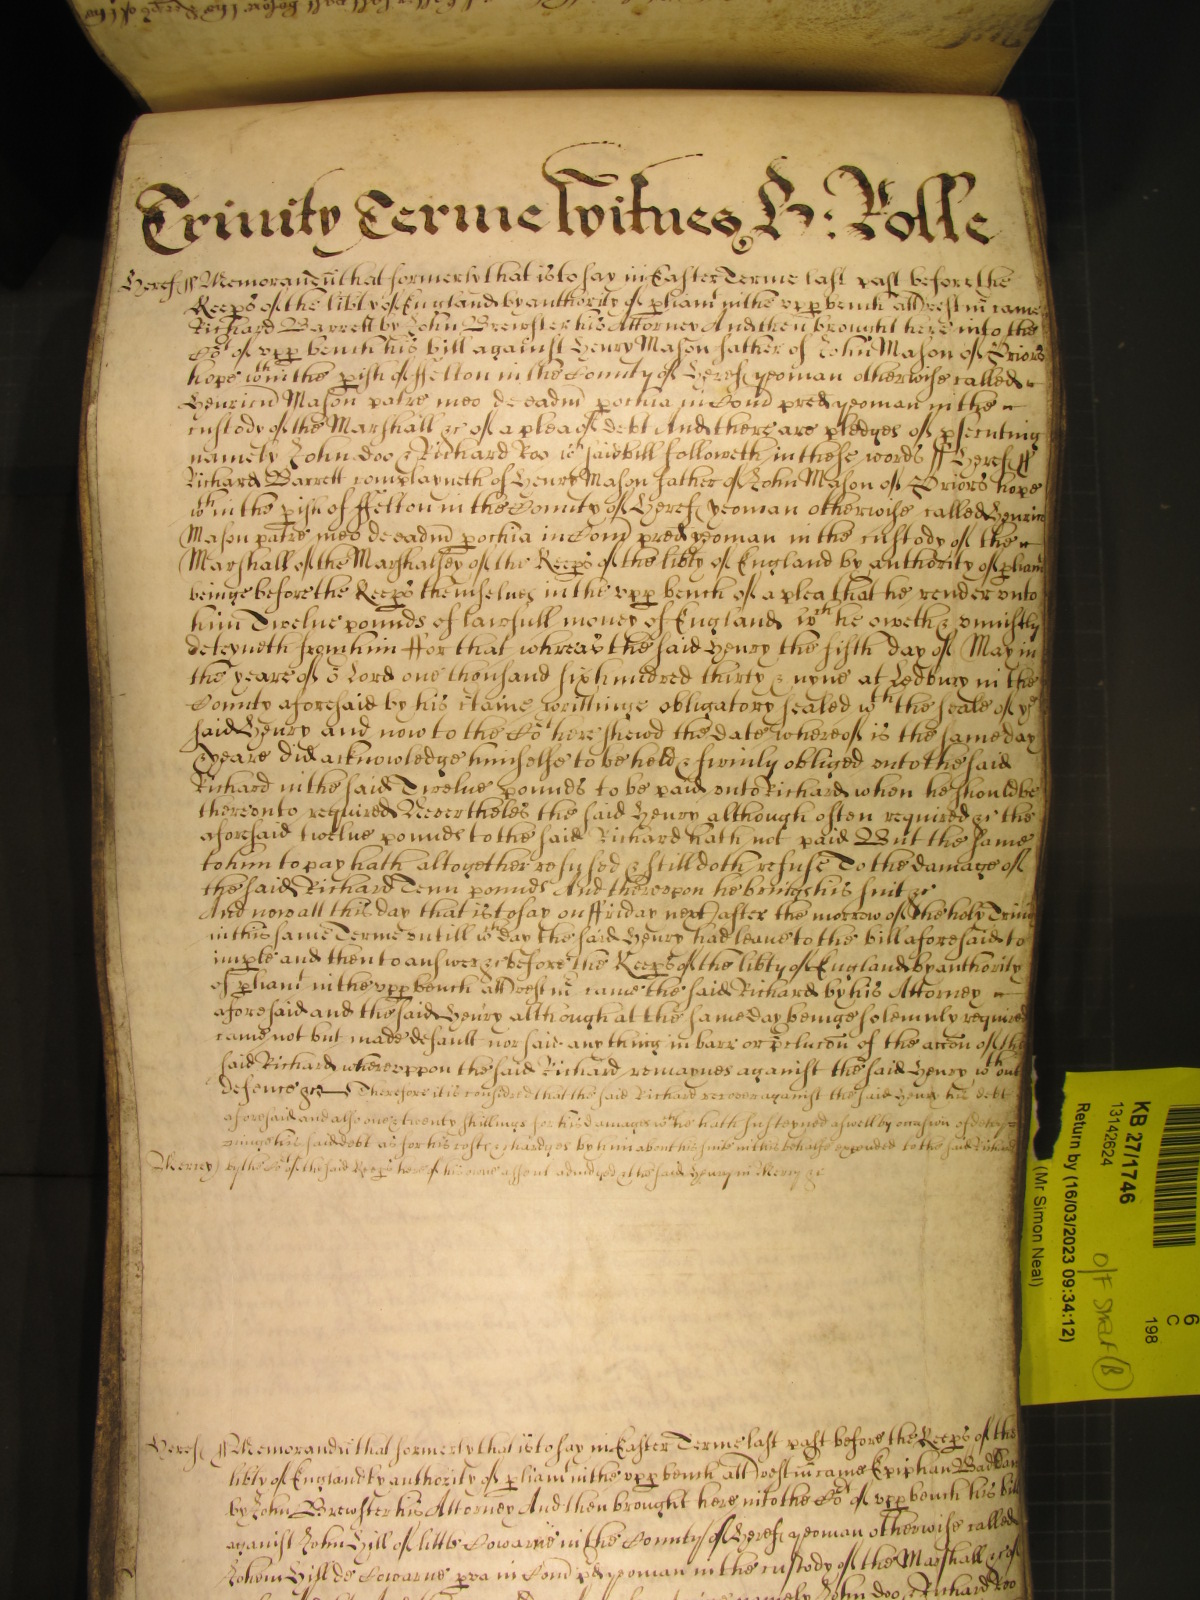 Trinity Terme Witnes H: Rolle
Heref ss Memorandu that formerly that is to say in Easter Terme last past before the
Keeps of the libty of England by authority of pliamt in the upp bench att Westm came
Richard Barrett by John Brewster his Attorney And then brought here into the
Cort of upp bench his bill against Henry Mason father of John Mason of Priors
hope wthin the pish of ffelton in the County of Heref yeoman otherwise called
Henricu Mason patre meo de eadm pochia in Com pred yeoman in the
custody of the Marshall &c of a plea of debt And there are pledges of psecuting
namely John Doo & Richard Roo wch said bill followeth in these words ss Heref ss
Richard Barrett complayneth of Henry Mason father of John Mason of Priors hope
wthin the pish of ffelton in the County of Heref yeoman otherwise called Henricu
Mason patre meo de eadm pochia in Com pred yeoman in the custody of the
Marshall of the Marshalsey of the Keeps of the libty of England by authority of pliamt
beinge before the Keeps themselves in the upp bench of a plea that he render unto
him Twelve pounds of lawfull money of England wch he oweth & uniustly
deteyneth from him ffor that whereas the said Henry the fifth day of May in
the yeare of o Lord one thousand six hundred thirty & nyne at Ledbury in the
County aforesaid by his certaine writtinge obligatory sealed wth the seale of ye
said Henry and now to the Cort here shewd the date whereof is the same day
& yeare did acknowledge himselfe to be held & firmly obliged unto the said
Richard in the said Twelve pounds to be paid unto Richard when he should be
thereunto required Neverthelesse the said Henry although often required &c the
aforesaid twelve pounds to the said Richard hath not paid But the same
to him to pay hath altogether refused & still doth refuse To the damage of
the said Richard Tenn pounds And thereupon he brings his suit &c
And now att this day that is to say on ffriday next after the morrow of the holy Trinity
in this same Terme untill wch day the said Henry had leave to the bill aforesaid to
imple and then to answer &c before the Keeps of the libty of England by authority
of pliamt in the upp bench att Westm came the said Richard by his Attorney
aforesaid and the said Henry although at the same day beinge solemnly required
came not but made default nor said any thing in barr or pclucon of the accon of the
said Richard whereuppon the said Richard remaynes against the said Henry wthout
defence &c Therefore it is considred that the said Richard recover against the said Henry his debt
aforesaid and also one & twenty shillings for his Damages wch he hath susteyned aswell by occasion of detey
ninge his said debt as for his costs & chardges by him about his suite in this behalfe expended to the said Richard
Mercy by the Cort of the said Keeps here of his owne assent adiudged & the said Henry in Mercy &c
Heref ss Memorandu that formerly that is to say in Easter Terme last past before the Keeps of the
libty of England by authority of pliamt in the upp bench att Westm came Epiphan
by John Brewster his Attorney And then brought here into the Cort of upp bench his bill
against John Hill of little Cowarne in the County of Heref yeoman otherwise called
Hill de Cowarne pva in Com pd yeoman in the custody of the Marshall &c of
namely John Doo & Richard Roo
KB 27/1746
13142624
Return by (16/03/2023 09:34:12)
(Mr Simon Neal)
6
C
198